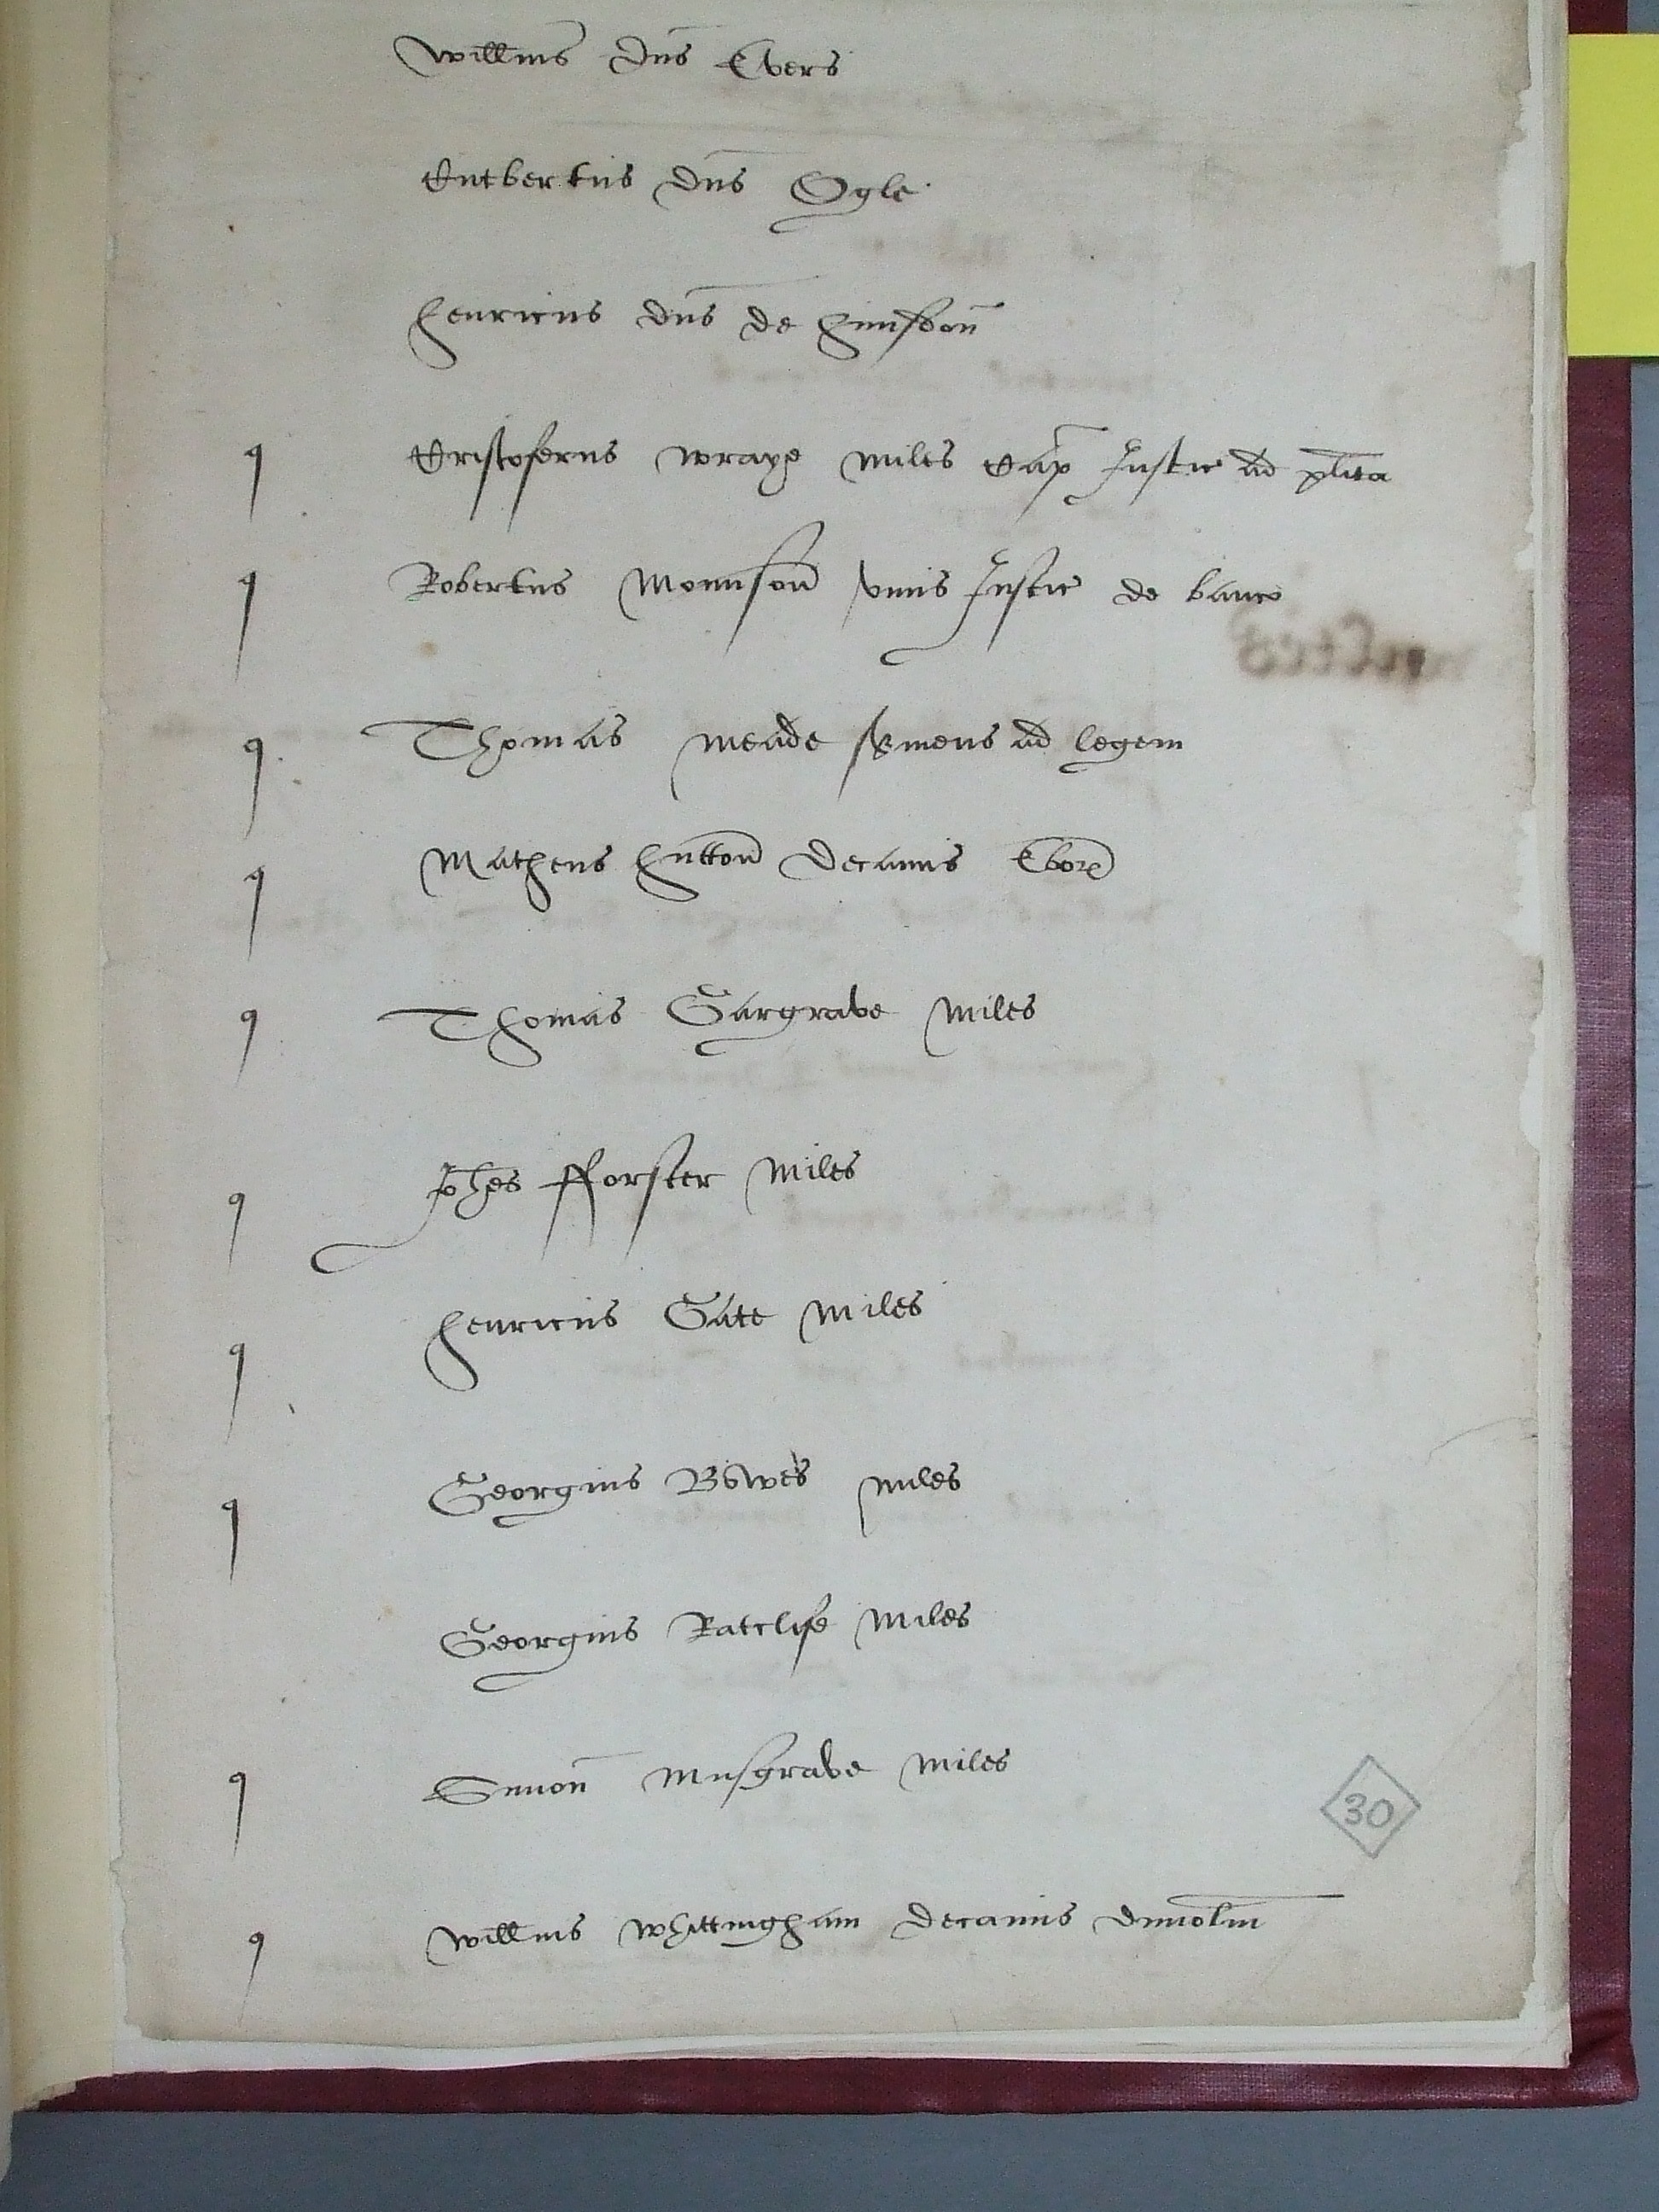 Willms dns Evers
Cutbertus dns Ogle
Henricus dns de Hunsdon
q Cristoferus Wraye miles Cap Justic ad plita
q Robertus Mounson unus Justic de banco
q Thomas Meade s̄viens ad legem
q Matheus Hutton decanus Ebor
q Thomas Gargrave miles
q Johes fforster miles
q Henricus Gate miles
q Georgius Bowes miles
Georgius Ratclife miles
q Simon Musgrave miles
30
q Willms Whittingham decanus Dunolm